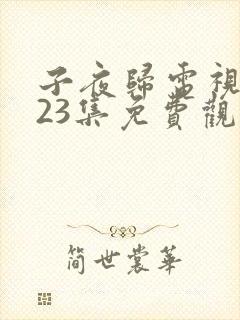 子夜歸電視
23集免費觀
简世裳華